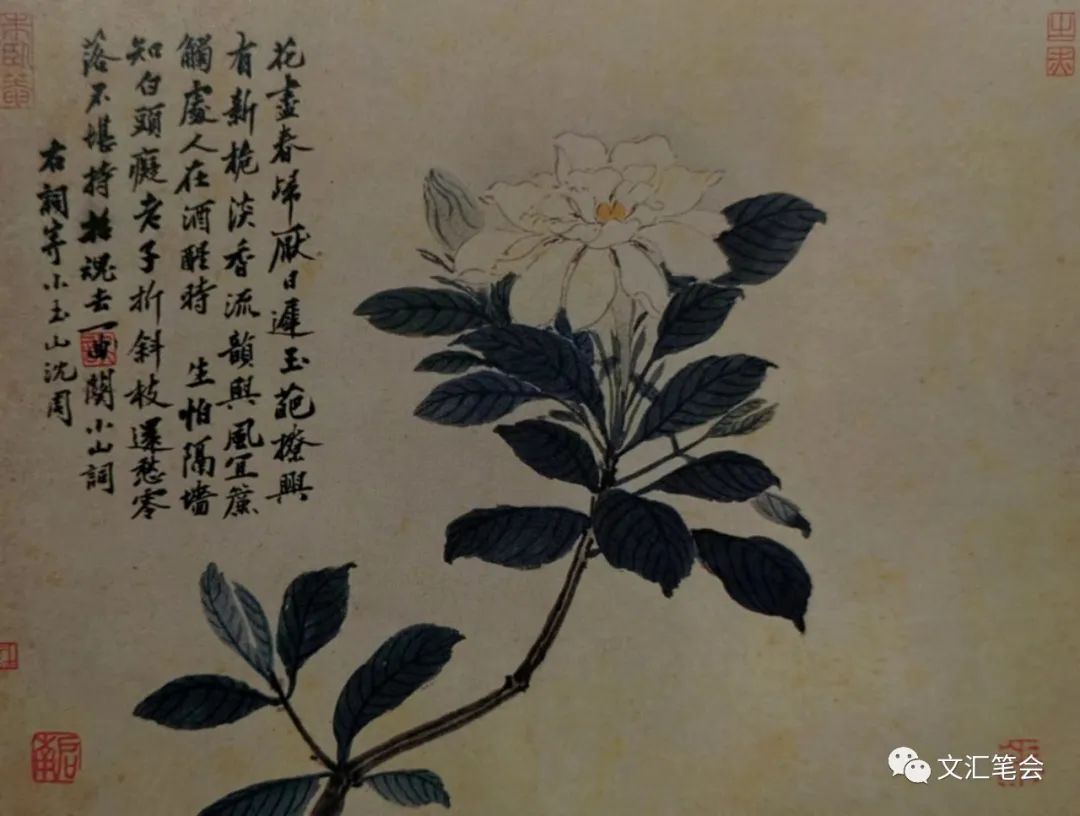 花盡春歸厭日遲玉葩撩興
有新梔淡香流韻與風宜簾
觸處人在酒醒時 生怕隔墻
知白頭癡老子折斜枝還愁零
落不堪持招魂去一曲闋小山詞
右詞寄小玉山沈周
啟南
文汇笔会